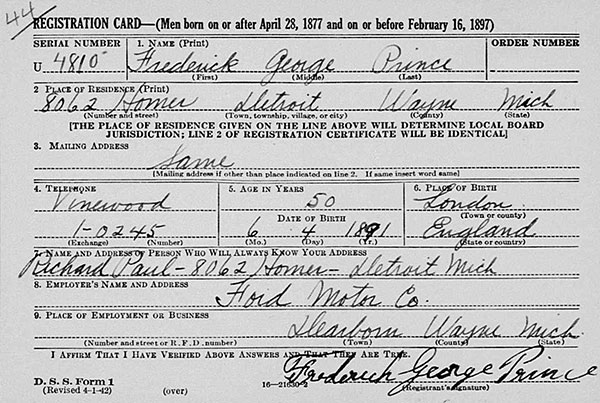 44
REGISTRATION CARD—(Men born on or after April 28, 1877 and on or before February 16, 1897)
SERIAL NUMBER 1. NAME (Print) ORDER NUMBER
U 4810 Frederick George Prince
(First) (Middle) (Last)
2 PLACE OF RESIDENCE (Print)
8062 Homer Detroit Wayne Mich
(Number and street) (Town, township, village, or city) (County) (State)
[THE PLACE OF RESIDENCE GIVEN ON THE LINE ABOVE WILL DETERMINE LOCAL BOARD
JURISDICTION; LINE 2 OF REGISTRATION CERTIFICATE WILL BE IDENTICAL]
3. MAILING ADDRESS
Same
[Mailing address if other than place indicated on line 2. If same insert word same]
4. TELEPHONE 5. AGE IN YEARS 6. PLACE OF BIRTH
Vinewood 50 London
DATE OF BIRTH (Town or county)
1-0245 6 4 1891 England
(Exchange) (Number) (Mo.) (Day) (Yr.) (State or country)
7. NAME AND ADDRESS OF PERSON WHO WILL ALWAYS KNOW YOUR ADDRESS
Richard Paul-8062 Homer-Detroit Mich
8. EMPLOYER'S NAME AND ADDRESS
Ford Motor Co.
9. PLACE OF EMPLOYMENT OR BUSINESS
Dearborn Wayne Mich.
(Number and street or R. F. D. number) (Town) (County) (State)
I AFFIRM THAT I HAVE VERIFIED ABOVE ANSWERS AND THAT THEY ARE TRUE.
Frederick George Prince
D. S. S. Form 1
(Revised 4-1-42) (over) 16-21630-2 (Registrant's signature)